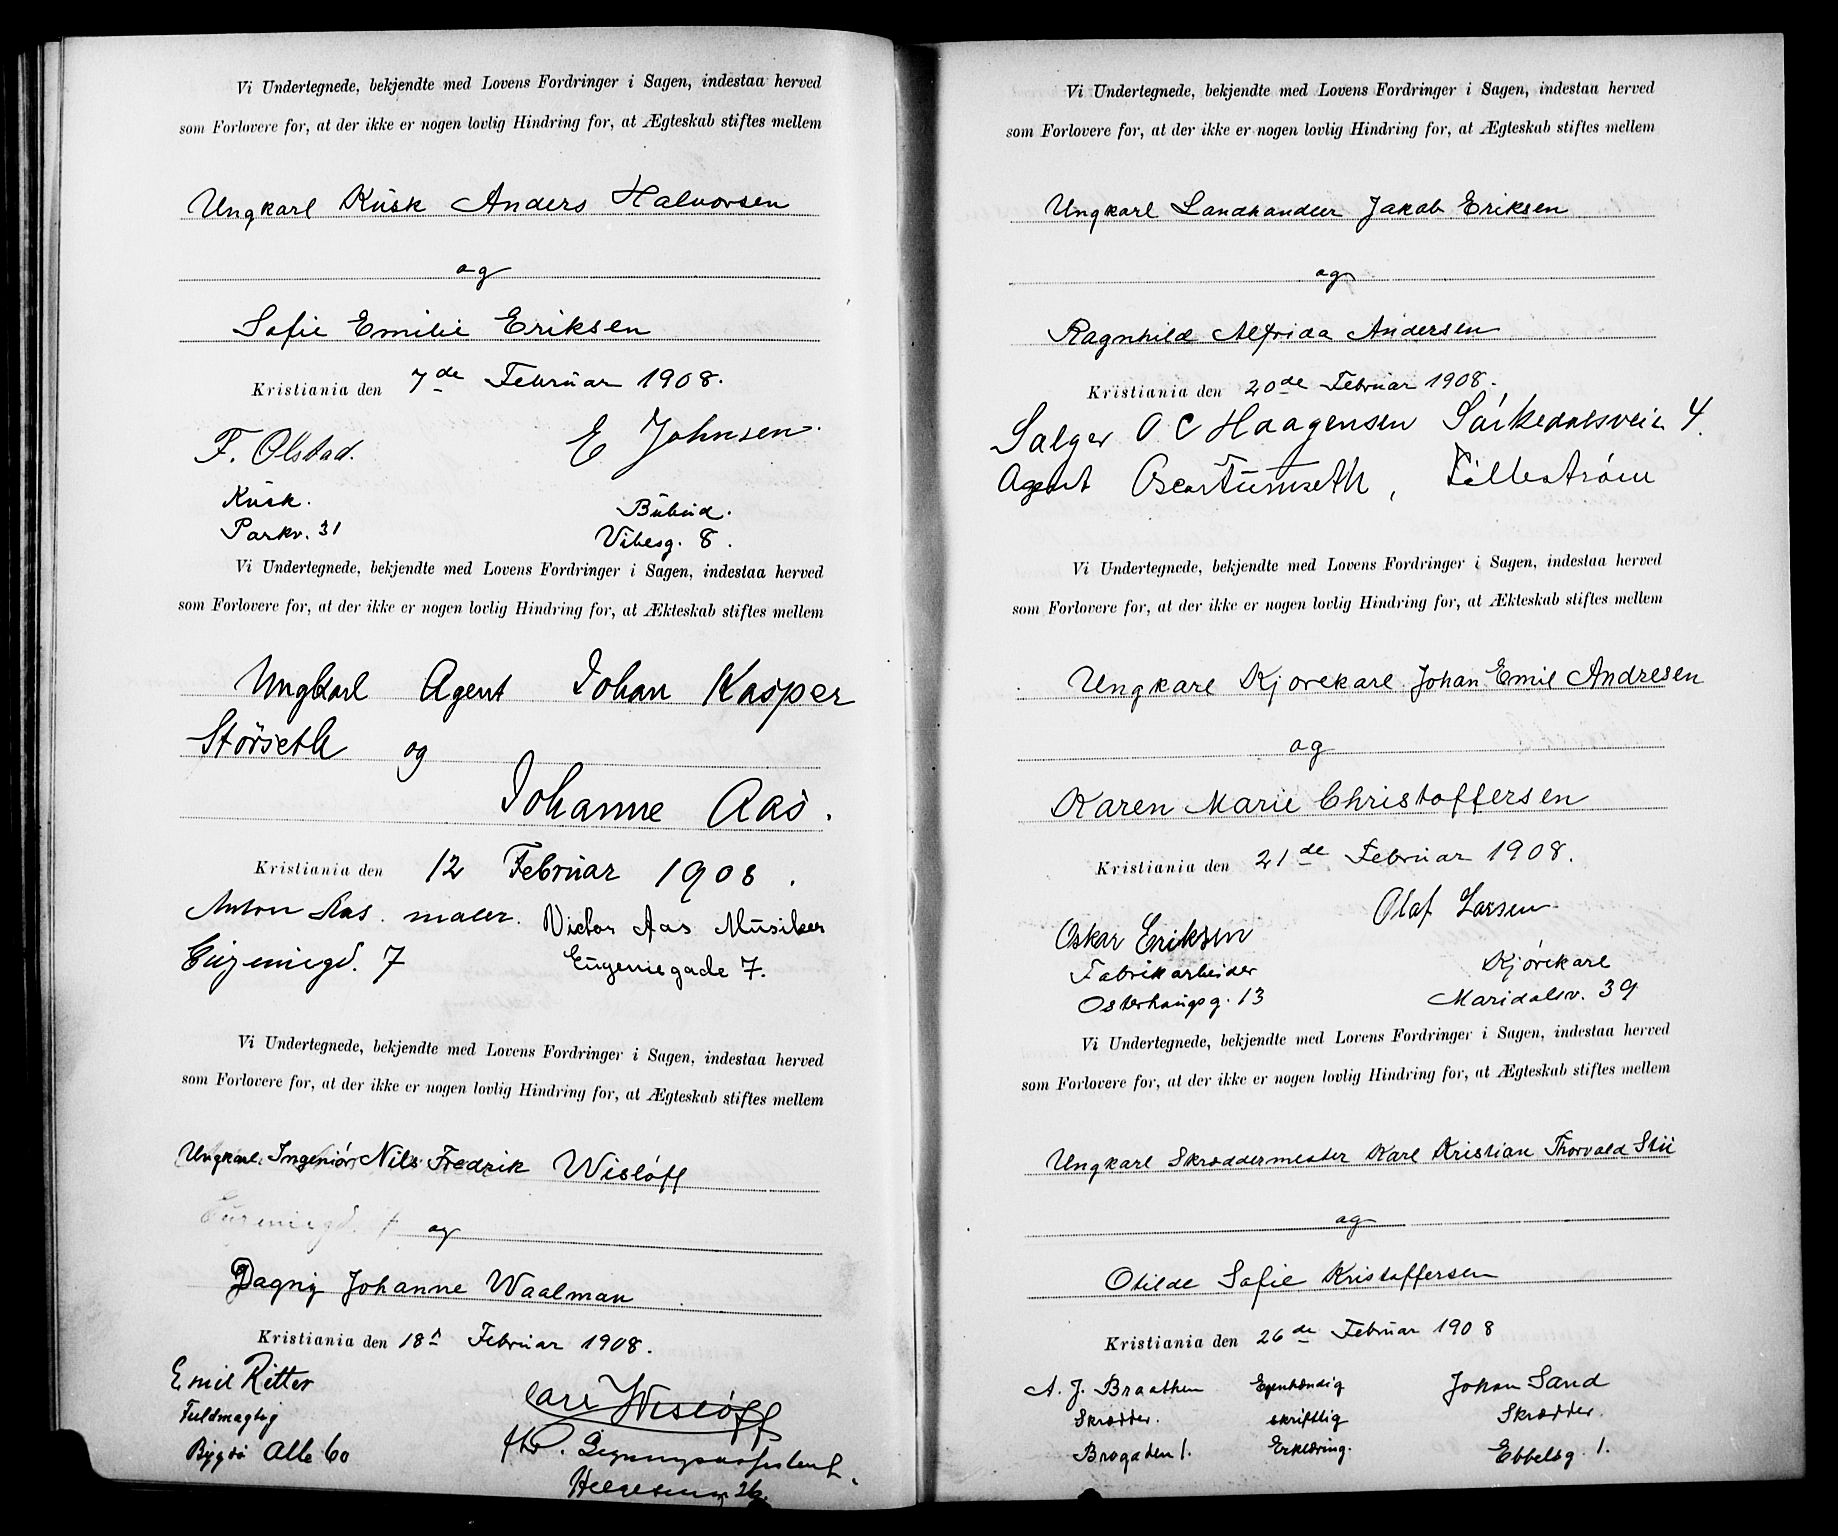 Vi Undertegnede, bekjendte med Lovens Fordringer i Sagen, indestaa herved
som Forlovere for, at der ikke er nogen lovlig Hindring for, at Ægteskab stiftes mellem
Ungkarl Kusk Anders Halvorsen
og
Sofie Emilie Eriksen
Kristiania den 7de Februar 1908.
F. Olstad. E Johnsen.
Kusk. Bübud.
Parkv. 31 Vibesg. 8.
Vi Undertegnede, bekjendte med Lovens Fordringer i Sagen, indestaa herved
som Forlovere for, at der ikke er nogen lovlig Hindring for, at Ækteskab stiftes mellem
Ungkarl Agent Johan Kasper
Störseth og
Johanne Aas.
Kristiania den 12 Februar 1908.
Anton Aas. maler. Victor Aas Musiker
Eugeniegd. 7 Eugeniegade 7.
Vi Undertegnede, bekjendte med Lovens Fordringer i Sagen, indestaa herved
som Forlovere for, at der ikke er nogen lovlig Hindring for, at Ægteskab stiftes mellem
Ungkarl, Ingeniör, Nils Fredrik Wisløff
Eugeniegd. 7 og
Dagny Johanne Waalman
Kristiania den 18 Februar 1908.
Emil Ritter Carl Wisløff
Fuldmægtig
Bygdö Alle 60
26.
Vi Undertegnede, bekjendte med Lovens Fordringer i Sagen, indestaa herved
som Forlovere for, at der ikke er nogen lovlig Hindring for, at Ægteskab stiftes mellem
Ungkarl Landhandler Jakob Eriksen
og
Ragnhild Alfrida Andersen
Kristiania den 20de Februar 1908.
Sælger O C Haagensen Sörkedalsvein 4.
Agent Oscar Furuseth, Lillestrøm
Vi Undertegnede, bekjendte med Lovens Fordringer i Sagen, indestaa herved
som Forlovere for, at der ikke er nogen lovlig Hindring for, at Ækteskab stiftes mellem
Ungkarl Kjørekarl Johan Emil Andresen
og
Karen Marie Christoffersen
Kristiania den 21de Februar 1908.
Oskar Eriksen Olaf Larsen
Fabrikarbeider Kjörekarl
Osterhaugsg. 13 Maridalsv. 39
Vi Undertegnede, bekjendte med Lovens Fordringer i Sagen, indestaa herved
som Forlovere for, at der ikke er nogen lovlig Hindring for, at Ægteskab stiftes mellem
Ungkarl Skræddermester Karl Kristian Thorvald Stii
og
Otilde Sofie Kristoffersen
Kristiania den 26de Februar 1908
A. J. Braathen Egenhændig Johan Sand
Skrædder. skriftlig Skrædder.
Brogaden 1. Erklæring. Ebbelsg. 1.